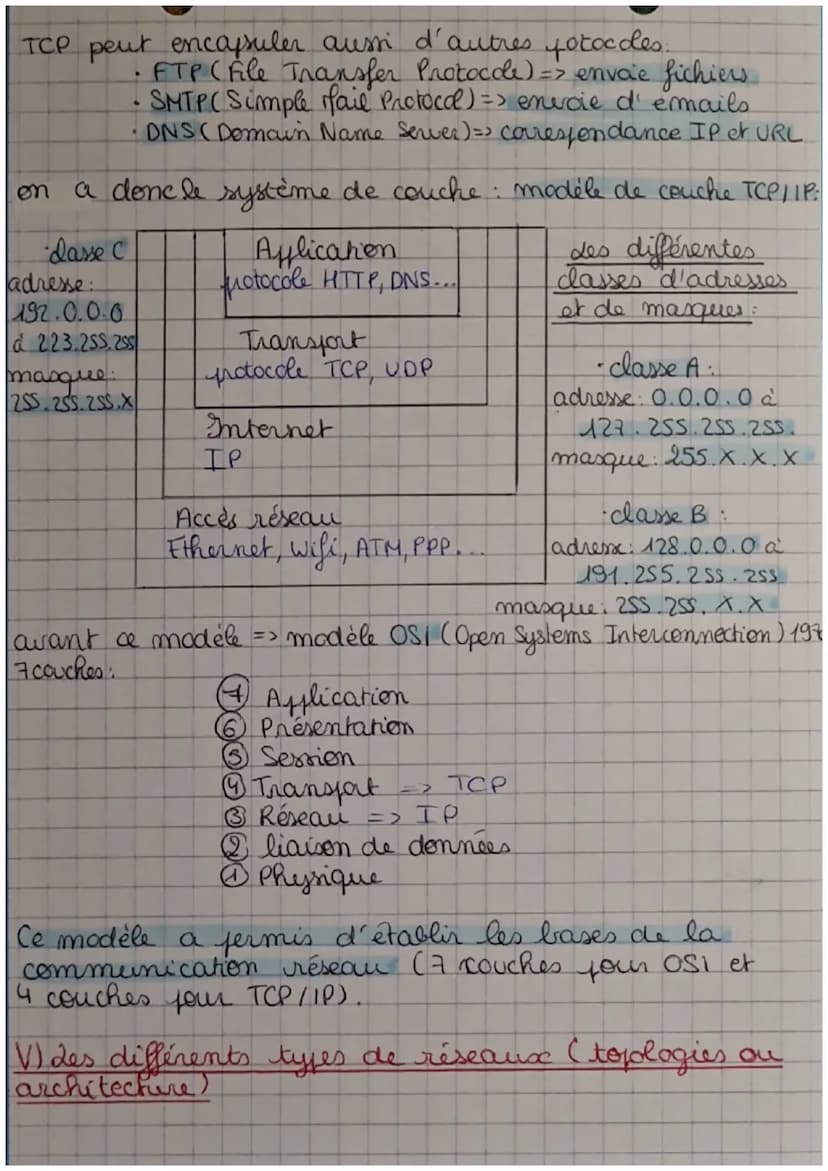 TCP peut encapsuler aussi d'autres protocoles.
· FTP (File Transfer Protocole) => envoie fichiers
· SMTP (Simple Mail Protocol) => envoie d'emails
· DNS (Domain Name Server) => correspondance IP et URL
on a donc le système de couche : modèle de couche TCP/IP:
· classe C
adresse :
192.0.0.0
à 223.255.255
masque :
255.255.255.X
Application
protocole HTTP, DNS...
Transport
protocole TCP, UDP
Internet
IP
Accès réseau
Ethernet, Wifi, ATM, PPP...
Les différentes
classes d'adresses
et de masques :
· classe A :
adresse : 0.0.0.0 à
127.255.255.255.
masque : 255.X.X.X
· classe B :
adresse : 128.0.0.0 à
191.255.255.255
masque : 255.255.X.X
avant ce modèle => modèle OSI (Open Systems Interconnection) 197
7 couches :
⑦ Application
⑥ Présentation
⑤ Session
④ Transport => TCP
③ Réseau => IP
② liaison de données
① Physique
Ce modèle a permis d'établir les bases de la
communication réseau (7 couches pour OSI et
4 couches pour TCP/IP).
V) Les différents types de réseaux (topologies ou
architecture)